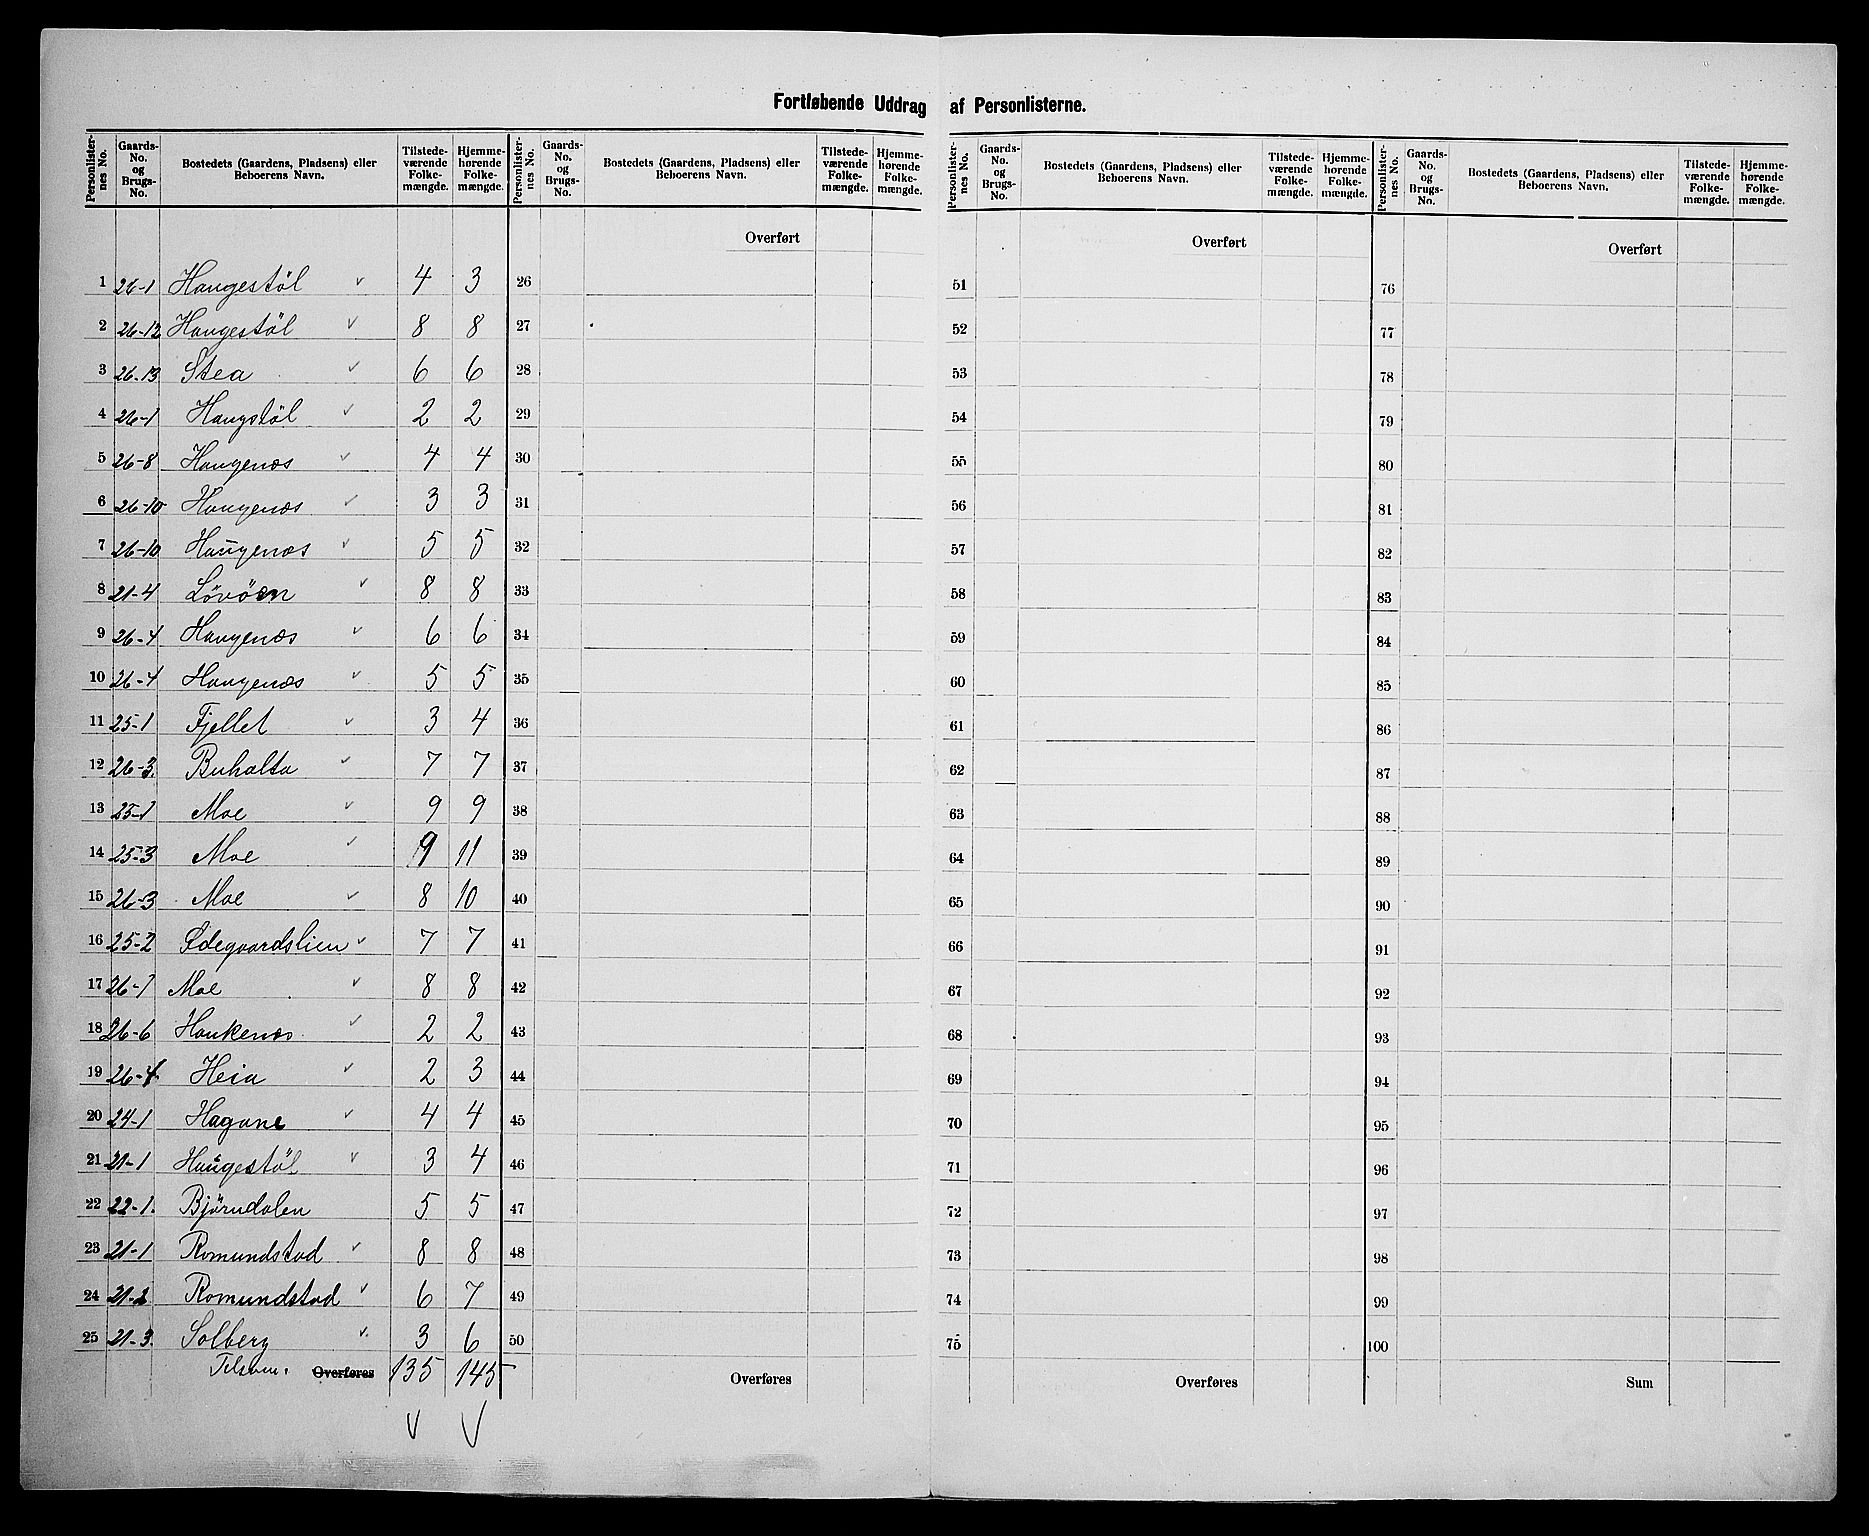 Fortløbende Uddrag af Personlisterne.
Personlister-nes No. Gaards-No. og Brugs-No. Bostedets (Gaardens, Pladsens) eller Beboerens Navn. Tilstede-værende Folke-mængde. Hjemme-hørende Folke-mængde. Personlister-nes No. Gaards-No. og Brugs-No. Bostedets (Gaardens, Pladsens) eller Beboerens Navn. Tilstede-værende Folke-mængde. Hjemme-hørende Folke-mængde. Personlister-nes No. Gaards-No. og Brugs-No. Bostedets (Gaardens, Pladsens) eller Beboerens Navn. Tilstede-værende Folke-mængde. Hjemme-hørende Folke-mængde. Personlister-nes No. Gaards-No. og Brugs-No. Bostedets (Gaardens, Pladsens) eller Beboerens Navn. Tilstede-værende Folke-mængde. Hjemme-hørende Folke-mængde.
Overført Overført Overført
1 26-1 Haugestøl 4 3 26 51 76
2 26-12 Haugestøl 8 8 27 52 77
3 26-13 Stea 6 6 28 53 78
4 26-1 Haugstøl 2 2 29 54 79
5 26-8 Haugenæs 4 4 30 55 80
6 26-10 Haugenæs 3 3 31 56 81
7 26-10 Haugenæs 5 5 32 57 82
8 21-4 Løvöen 8 8 33 58 83
9 26-4 Haugenæs 6 6 34 59 84
10 26-4 Haugenæs 5 5 35 60 85
11 25-1 Fjellet 3 4 36 61 86
12 26-3. Buhalta 7 7 37 62 87
13 25-1 Moe 9 9 38 63 88
14 25-3 Moe 9 11 39 64 89
15 26-3 Moe 8 10 40 65 90
16 25-2 Ødegaardslien 7 7 41 66 91
17 26-1 Moe 8 8 42 67 92
18 26-6 Haukenæs 2 2 43 68 93
19 26-4 Heia 2 3 44 69 94
20 24-1 Hagane 4 4 45 70 95
21 21-1 Haugestøl 3 4 46 71 96
22 22-1. Bjørndalen 5 5 47 72 97
23 21-1 Romundstad 8 8 48 73 98
24 21-2 Romundstad 6 7 49 74 99
25 21-3. Solberg 3 6 50 75 100
Tilsam. Overføres 135 145 Overføres Overføres Sum